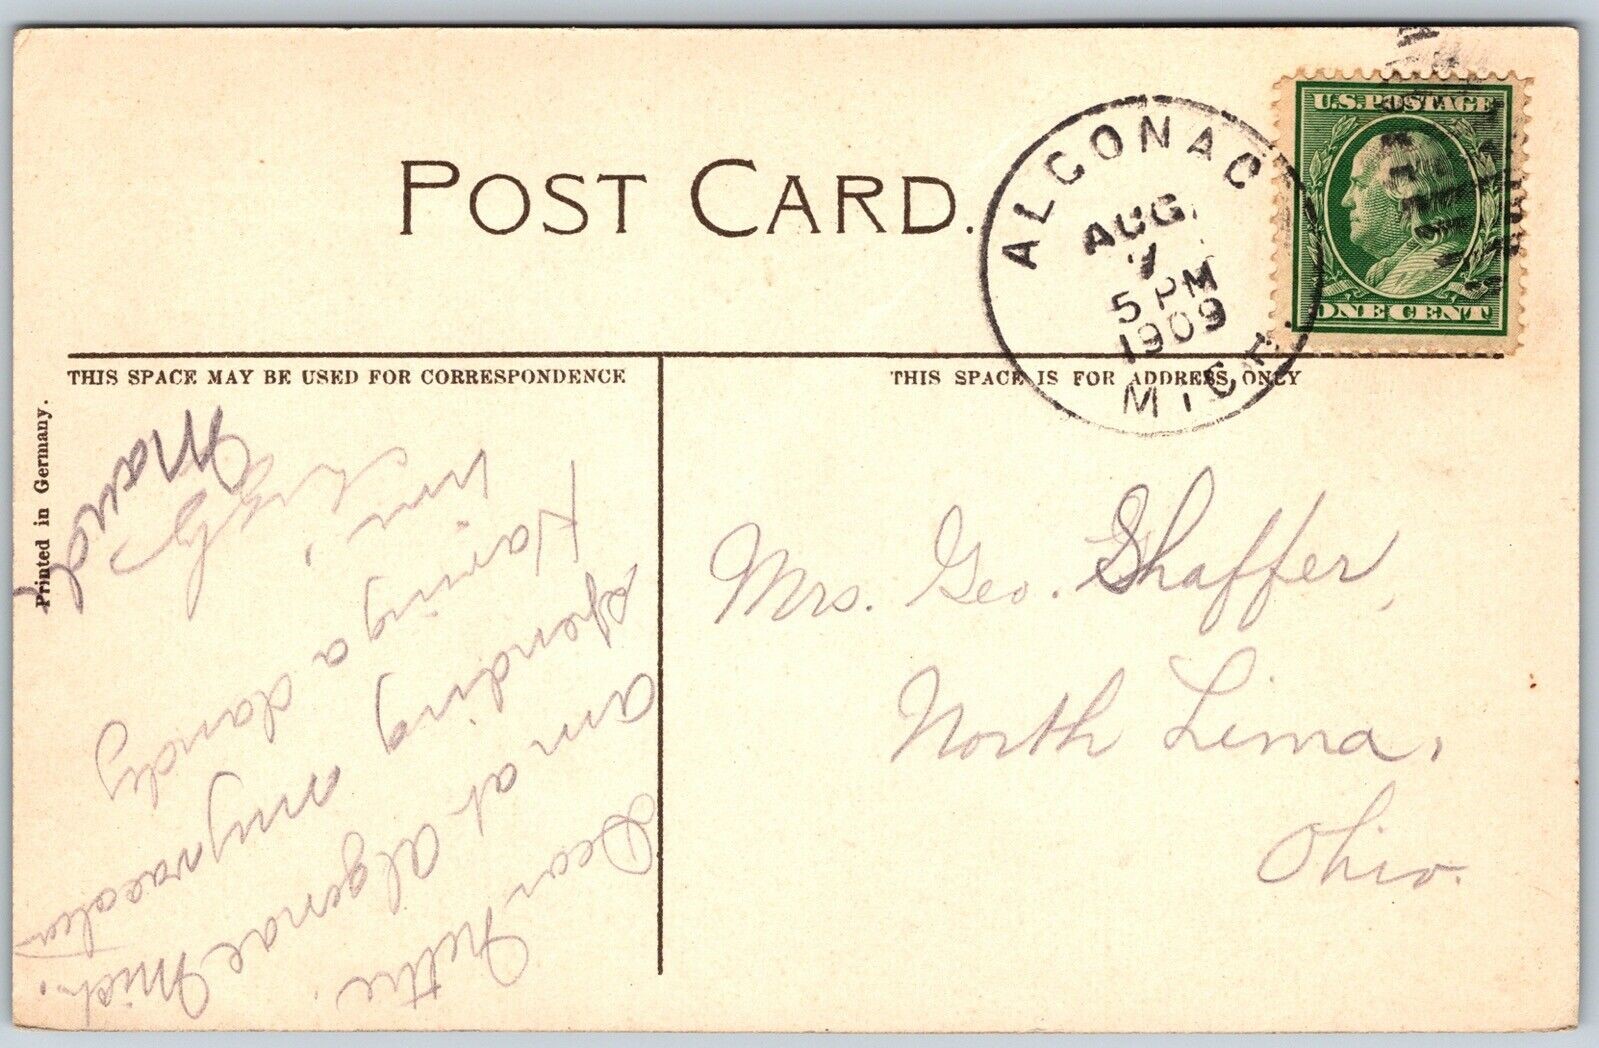 POST CARD.
U.S. POSTAGE
ONE CENT
ALGONAC
AUG.
7
5 PM
1909
MICH.
THIS SPACE MAY BE USED FOR CORRESPONDENCE
THIS SPACE IS FOR ADDRESS ONLY
Printed in Germany.
Dear Nettie.
am at Algonac Mich.
spending my vacation
Having a dandy
time,
Maud
Mrs. Geo. Shaffer,
North Lima,
Ohio.